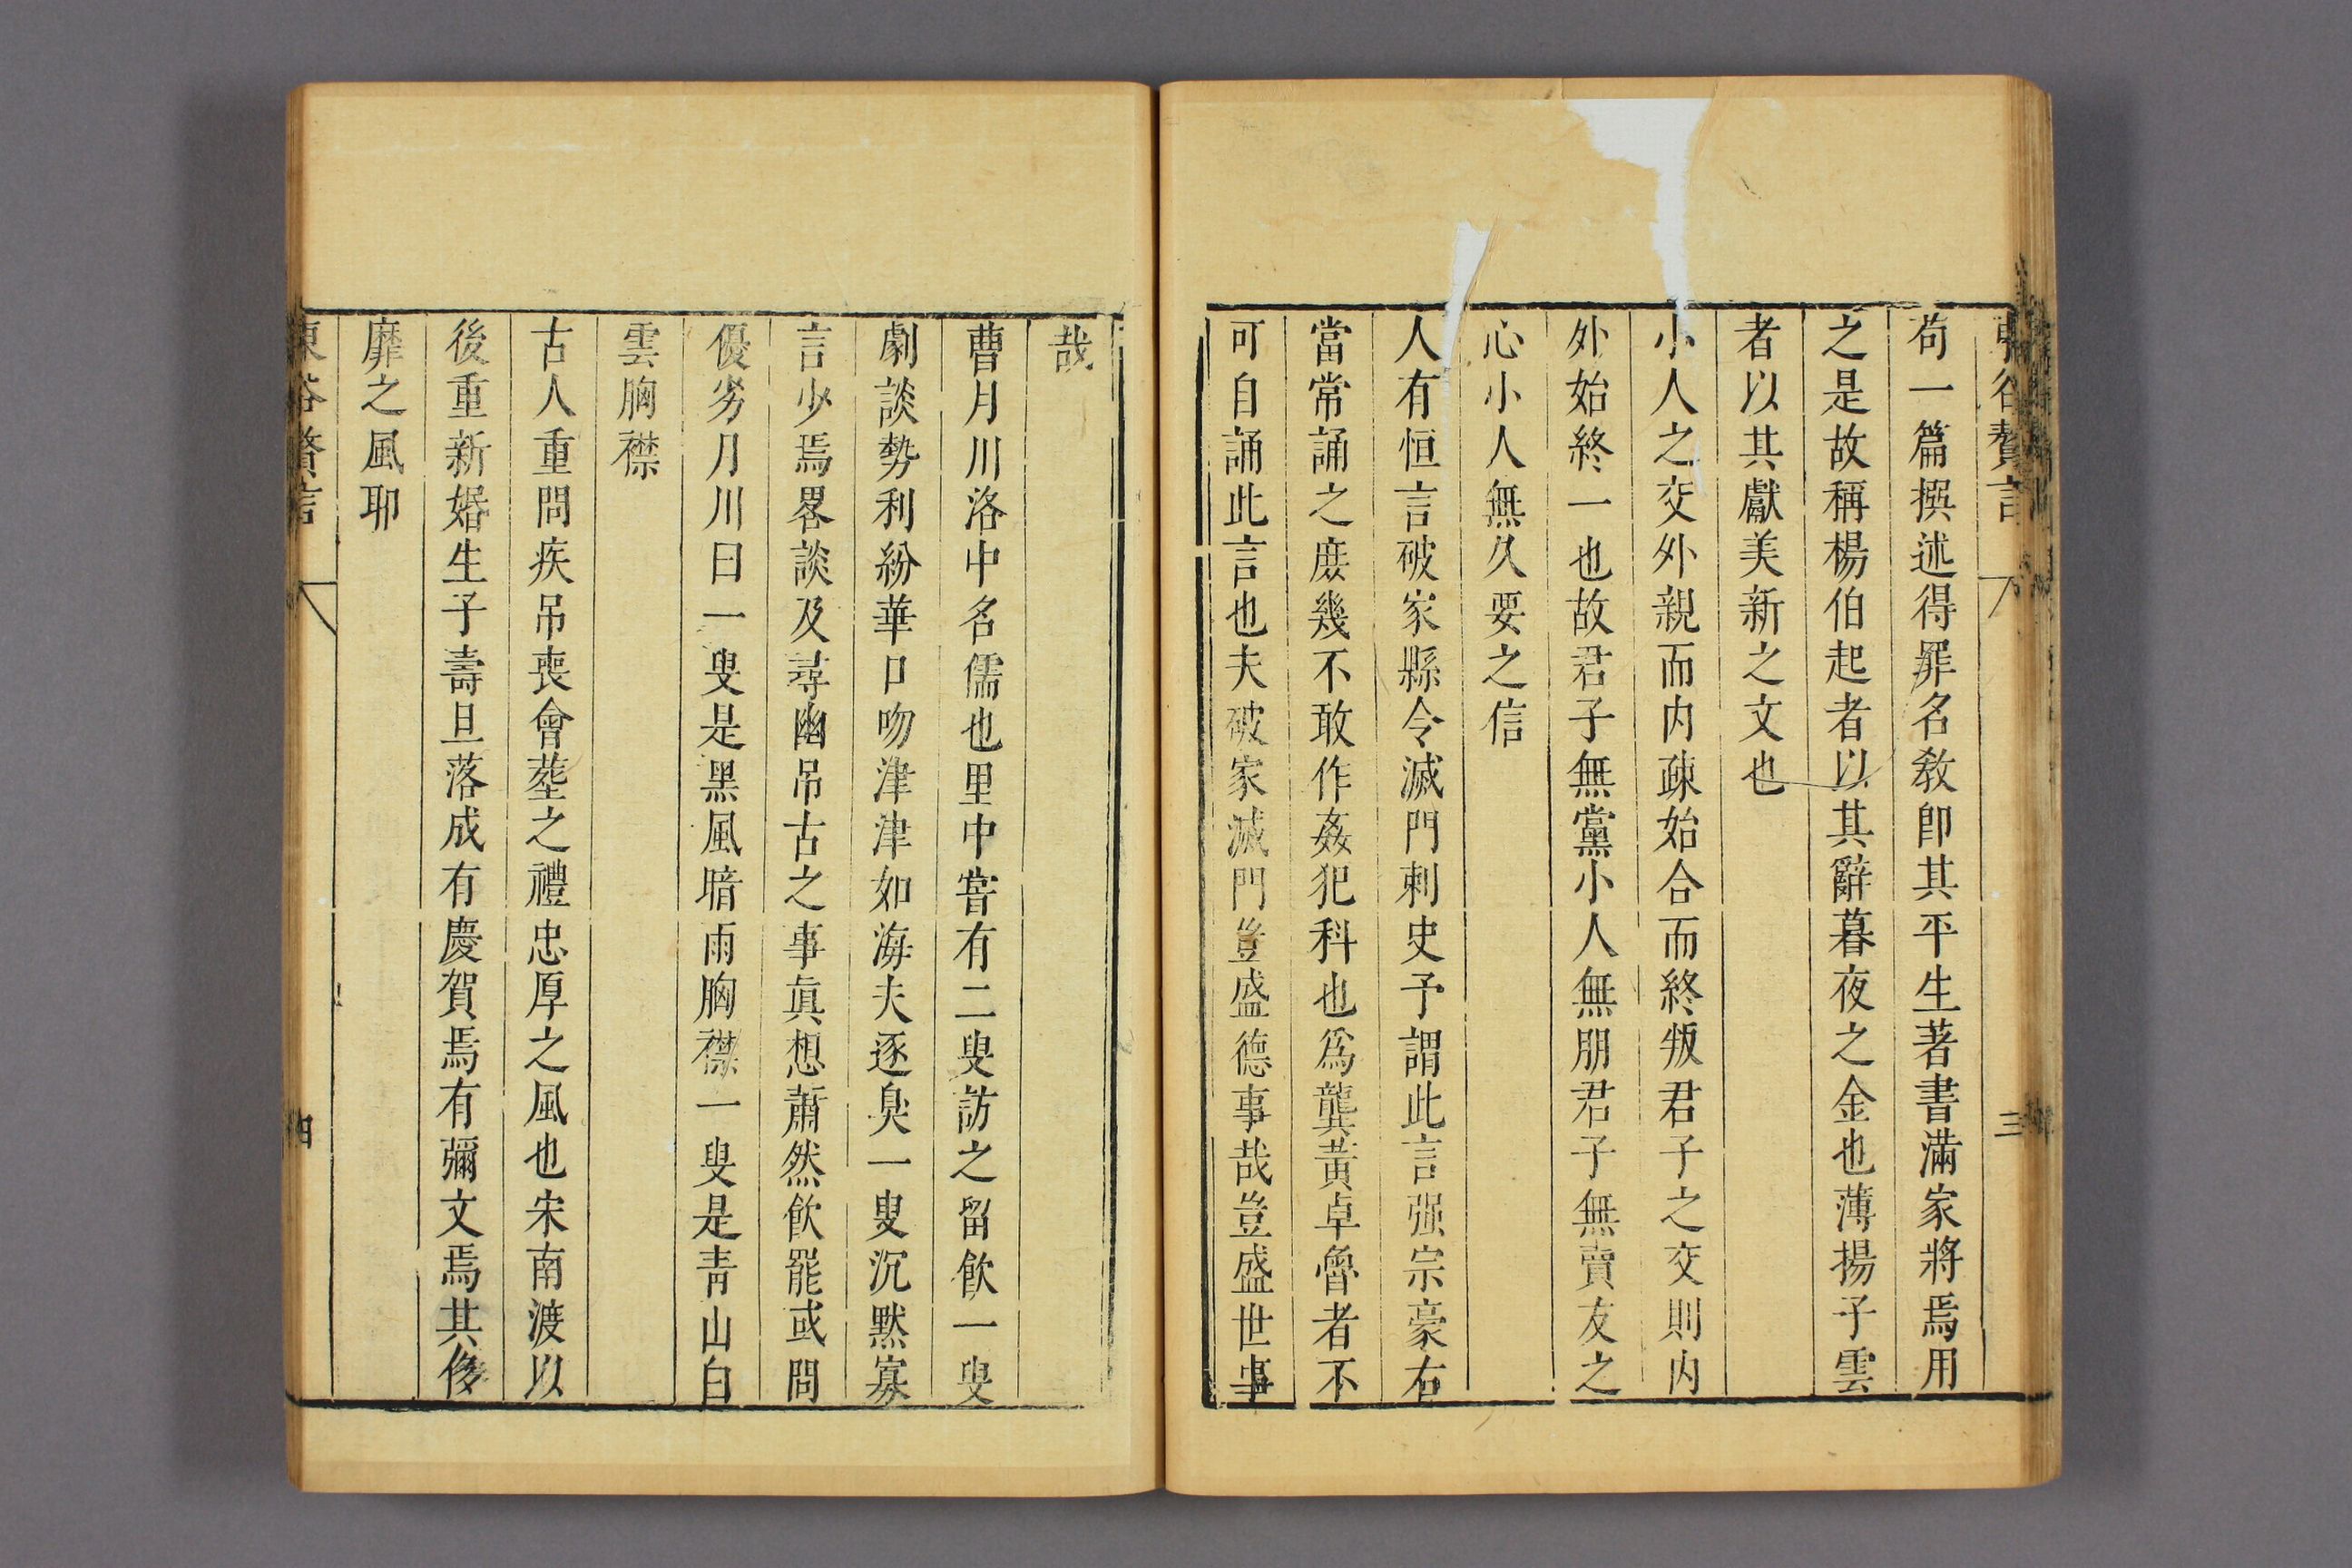 東谷贅言 下 三
苟一篇撰述得罪名教即其平生著書滿家將焉用
之是故稱楊伯起者以其辭暮夜之金也薄揚子雲
者以其獻美新之文也
小人之交外親而内疎始合而終叛君子之交則内
外始終一也故君子無黨小人無朋君子無賣友之
心小人無久要之信
人有恒言破家縣令滅門刺史予謂此言強宗豪右
當常誦之庶幾不敢作姦犯科也爲龔黃卓魯者不
可自誦此言也夫破家滅門豈盛德事哉豈盛世事
哉
曹月川洛中名儒也里中嘗有二叟訪之留飲一叟
劇談勢利紛華口吻津津如海夫逐臭一叟沉黙寡
言少焉畧談及尋幽吊古之事眞想蕭然飲罷或問
優劣月川曰一叟是黑風暗雨胸襟一叟是青山白
雲胸襟
古人重問疾吊喪會塟之禮忠厚之風也宋南渡以
後重新婚生子壽旦落成有慶賀焉有彌文焉其後
靡之風耶
東谷贅言 下 四